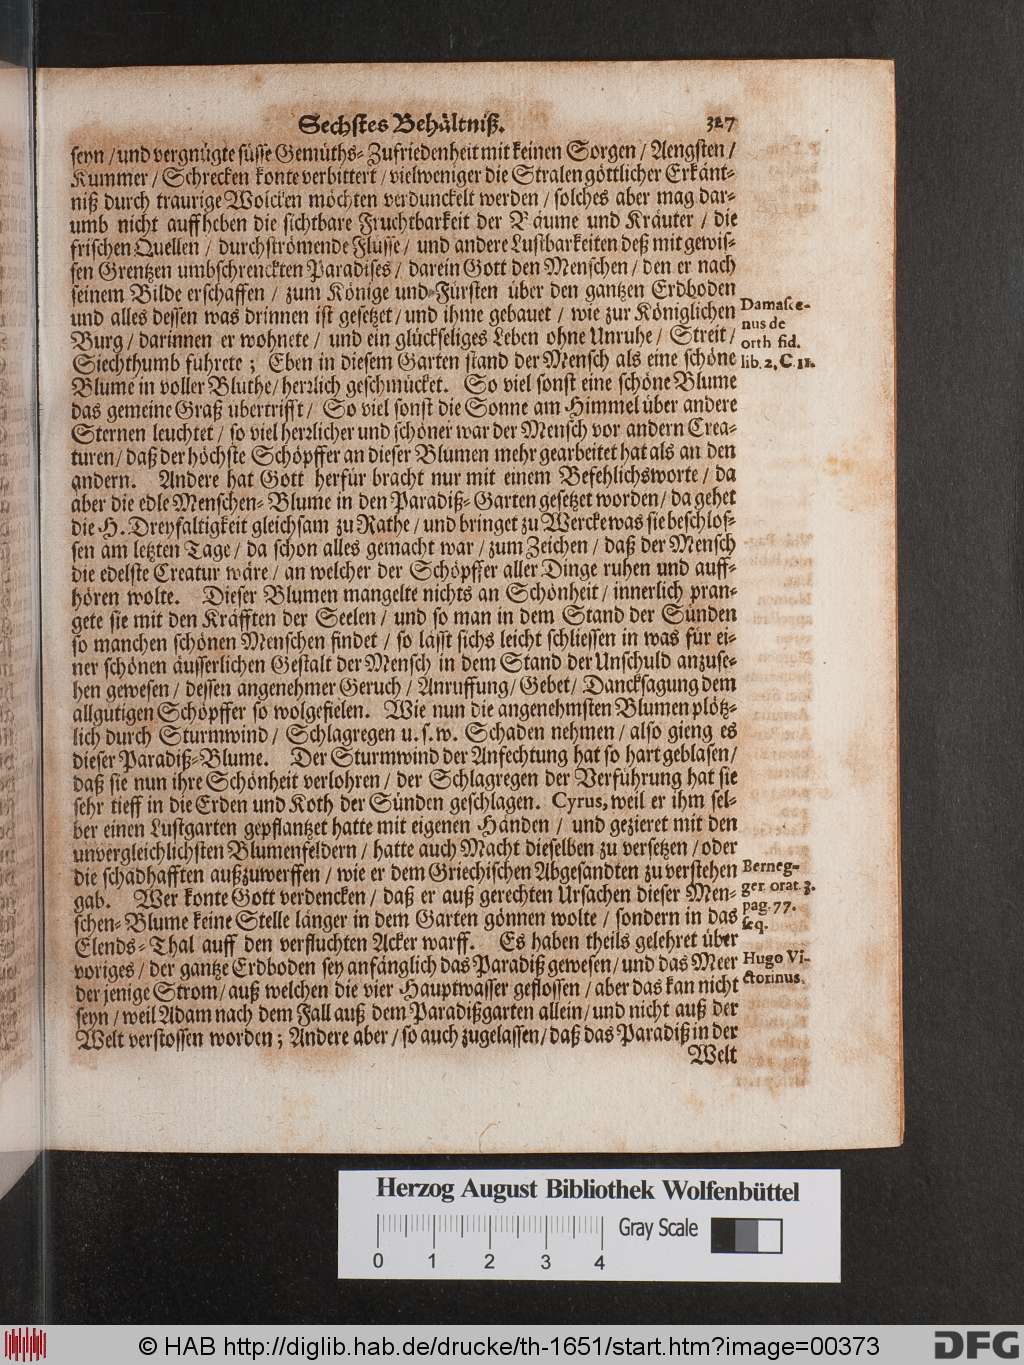 Sechstes Behältniß. 327
seyn / und vergnügte süsse Gemüths-Zufriedenheit mit keinen Sorgen / Aengsten /
Kummer / Schrecken konte verbittert / vielweniger die Stralen göttlicher Erkänt-
niß durch traurige Wolcken möchten verdunckelt werden / solches aber mag dar-
umb nicht auffheben die sichtbare Fruchtbarkeit der Bäume und Kräuter / die
frischen Quellen / durchströmende Flüsse / und andere Lustbarkeiten deß mit gewis-
sen Grentzen umbschrenckten Paradises / darein Gott den Menschen / den er nach
seinem Bilde erschaffen / zum Könige und Fürsten über den gantzen Erdboden
und alles dessen was drinnen ist gesetzet / und ihme gebauet / wie zur Königlichen
Burg / darinnen er wohnete / und ein glückseliges Leben ohne Unruhe / Streit /
Siechthumb führete ; Eben in diesem Garten stand der Mensch als eine schöne
Blume in voller Blüthe / herrlich geschmücket. So viel sonst eine schöne Blume
das gemeine Graß übertrifft / So viel sonst die Sonne am Himmel über andere
Sternen leuchtet / so viel herrlicher und schöner war der Mensch vor andern Crea-
turen / daß der höchste Schöpffer an dieser Blumen mehr gearbeitet hat als an den
andern. Andere hat Gott herfür bracht nur mit einem Befehlichsworte / da
aber die edle Menschen-Blume in den Paradiß-Garten gesetzet worden / da gehet
die H. Dreyfaltigkeit gleichsam zu Rathe / und bringet zu Wercke was sie beschlos-
sen am letzten Tage / da schon alles gemacht war / zum Zeichen / daß der Mensch
die edelste Creatur wäre / an welcher der Schöpffer aller Dinge ruhen und auff-
hören wolte. Dieser Blumen mangelte nichts an Schönheit / innerlich pran-
gete sie mit den Kräfften der Seelen / und so man in dem Stand der Sünden
so manchen schönen Menschen findet / so lässt sichs leicht schliessen in was für ei-
ner schönen äusserlichen Gestalt der Mensch in dem Stand der Unschuld anzuse-
hen gewesen / dessen angenehmer Geruch / Anruffung / Gebet / Dancksagung dem
allgütigen Schöpffer so wolgefielen. Wie nun die angenehmsten Blumen plötz-
lich durch Sturmwind / Schlagregen u. s. w. Schaden nehmen / also gieng es
dieser Paradiß-Blume. Der Sturmwind der Anfechtung hat so hart geblasen /
daß sie nun ihre Schönheit verlohren / der Schlagregen der Verführung hat sie
sehr tieff in die Erden und Koth der Sünden geschlagen. Cyrus, weil er ihm sel-
ber einen Lustgarten gepflantzet hatte mit eigenen Händen / und gezieret mit den
unvergleichlichsten Blumenfeldern / hatte auch Macht dieselben zu versetzen / oder
die schadhafften außzuwerffen / wie er dem Griechischen Abgesandten zu verstehen
gab. Wer konte Gott verdencken / daß er auß gerechten Ursachen dieser Men-
schen-Blume keine Stelle länger in dem Garten gönnen wolte / sondern in das
Elends-Thal auff den verfluchten Acker warff. Es haben theils gelehret über
voriges / der gantze Erdboden sey anfänglich das Paradiß gewesen / und das Meer
der jenige Strom / auß welchen die vier Hauptwasser geflossen / aber das kan nicht
seyn / weil Adam nach dem Fall auß dem Paradißgarten allein / und nicht auß der
Welt verstossen worden ; Andere aber / so auch zugelassen / daß das Paradiß in der
Welt
Damasce-
nus de
orth fid.
lib. 2, C. 11.
Berneg-
ger orat. 3.
pag. 77.
seq.
Hugo Vi-
ctorinus.
Herzog August Bibliothek Wolfenbüttel
Gray Scale
0 1 2 3 4
© HAB http://diglib.hab.de/drucke/th-1651/start.htm?image=00373
DFG